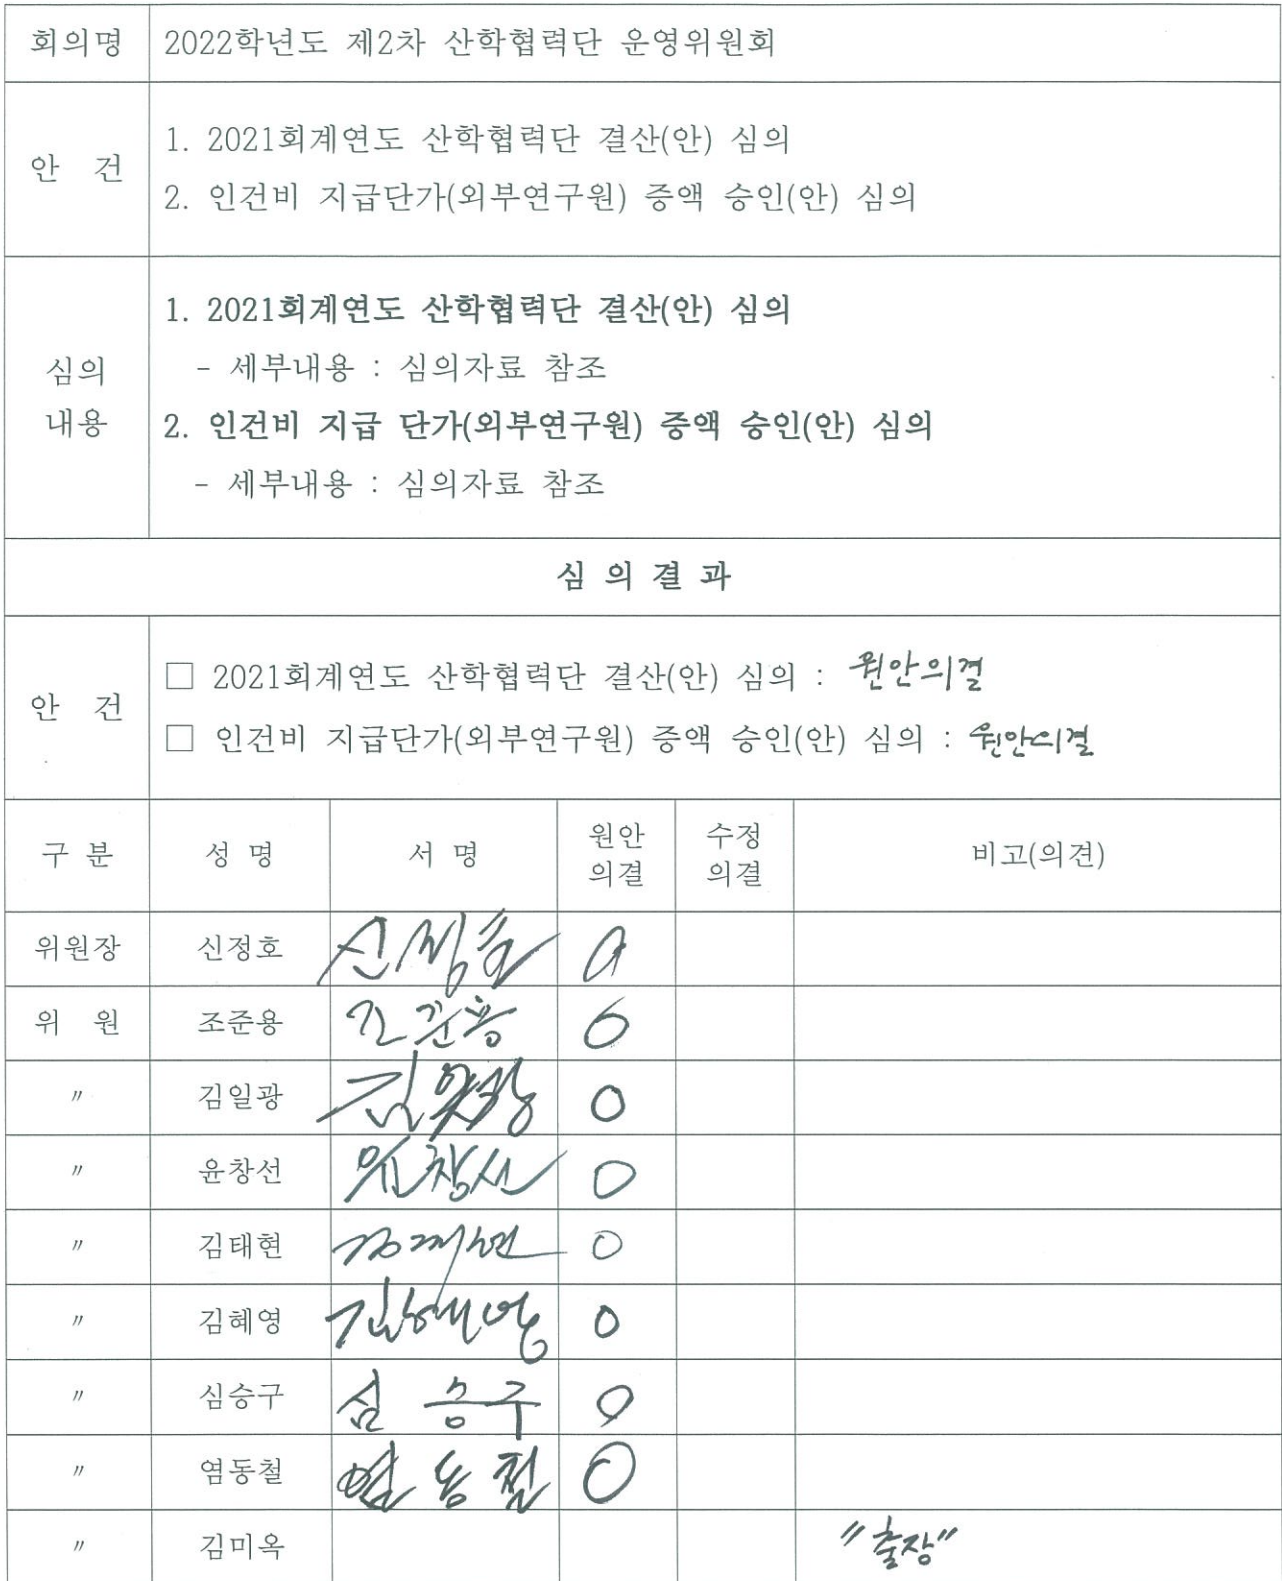 회의명 2022학년도 제2차 산학협력단 운영위원회
안 건
1. 2021회계연도 산학협력단 결산(안) 심의
2. 인건비 지급단가(외부연구원) 증액 승인(안) 심의
심의
내용
1. 2021회계연도 산학협력단 결산(안) 심의
- 세부내용 : 심의자료 참조
2. 인건비 지급 단가(외부연구원) 증액 승인(안) 심의
- 세부내용 : 심의자료 참조
심 의 결 과
안 건
□ 2021회계연도 산학협력단 결산(안) 심의 : 원안의결
□ 인건비 지급단가(외부연구원) 증액 승인(안) 심의 : 원안의결
구 분 성 명 서 명 원안 의결 수정 의결 비고(의견)
위원장 신정호 신정호 O
위 원 조준용 조준용 O
〃 김일광 김일광 O
〃 윤창선 윤창선 O
〃 김태현 김태현 O
〃 김혜영 김혜영 O
〃 심승구 심승구 O
〃 염동철 염동철 O
〃 김미옥 "출장"